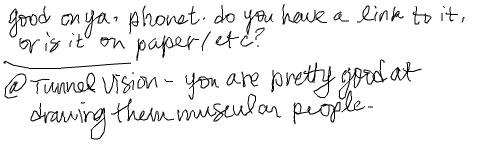 good on ya, phonet. do you have a link to it,
or is it on paper/etc?
@ Tunnel Vision - you are pretty good at
drawing them muscular people-